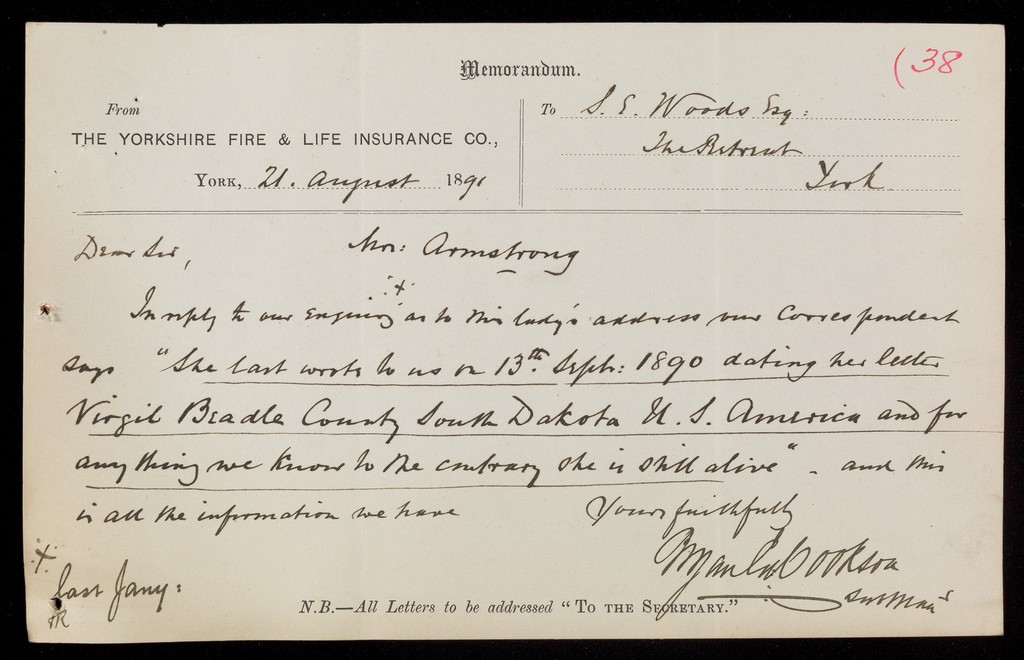 (38
Memorandum.
From
THE YORKSHIRE FIRE & LIFE INSURANCE CO.,
York, 21. August 1891
To S. E. Woods Esq:
The Retreat
York
Dear Sir,
Mrs: Armstrong
In reply to our enquiry .x. as to this lady's address our Correspondent
says "She last wrote to us on 13th. Septr: 1890 dating her letter
Virgil Beadle County South Dakota U. S. America and for
anything we know to the contrary she is still alive" - and this
is all the information we have
Yours faithfully
Cookson
.x.
last Jany:
N.B.—All Letters to be addressed "To the Secretary."